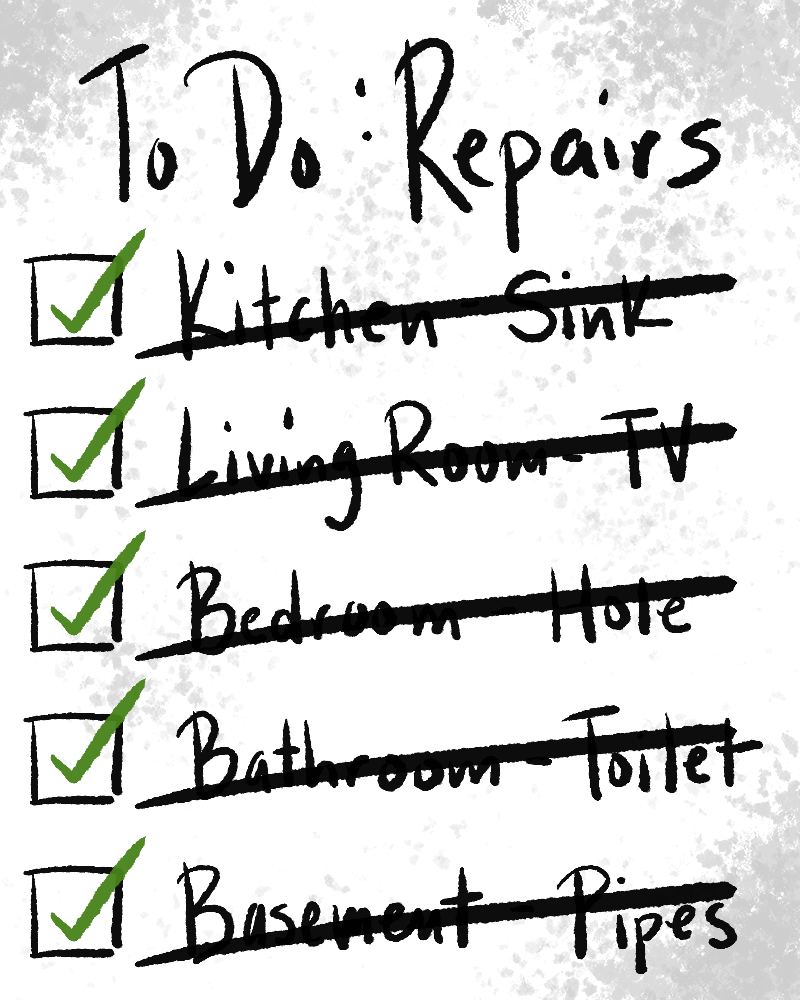 To Do: Repairs
Kitchen Sink
Living Room - TV
Bedroom - Hole
Bathroom - Toilet
Basement - Pipes